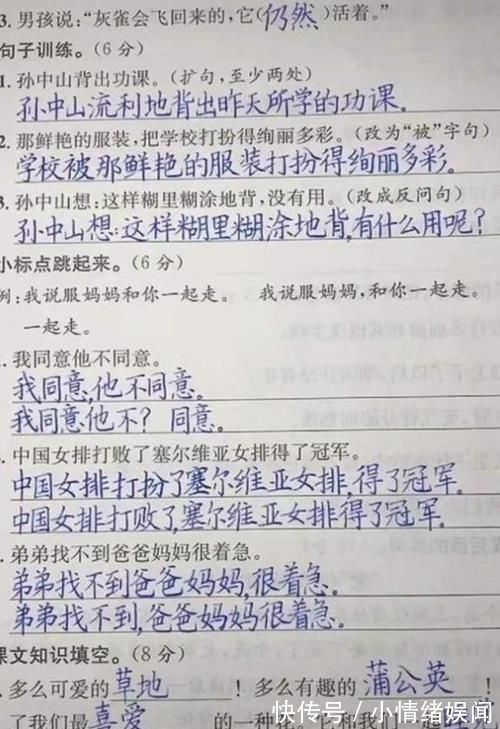 3. 男孩说:“灰雀会飞回来的,它(仍然)活着。”
句子训练。(6分)
1. 孙中山背出功课。(扩句,至少两处)
孙中山流利地背出昨天所学的功课。
2. 那鲜艳的服装,把学校打扮得绚丽多彩。(改为“被”字句)
学校被那鲜艳的服装打扮得绚丽多彩。
3. 孙中山想:这样糊里糊涂地背,没有用。(改成反问句)
孙中山想:这样糊里糊涂地背,有什么用呢?
小标点跳起来。(6分)
例:我说服妈妈和你一起走。 我说服妈妈,和你
一起走。
. 我同意他不同意。
我同意,他不同意。
我同意他不? 同意。
. 中国女排打败了塞尔维亚女排得了冠军。
中国女排打扮了塞尔维亚女排,得了冠军。
中国女排打败了,塞尔维亚女排得了冠军。
. 弟弟找不到爸爸妈妈很着急。
弟弟找不到爸爸妈妈,很着急。
弟弟找不到,爸爸妈妈很着急。
课文知识填空。(8分)
. 多么可爱的草地 ! 多么有趣的蒲公英!
了我们最喜爱的一种花。它和我们一起
快传号/小情绪娱闻